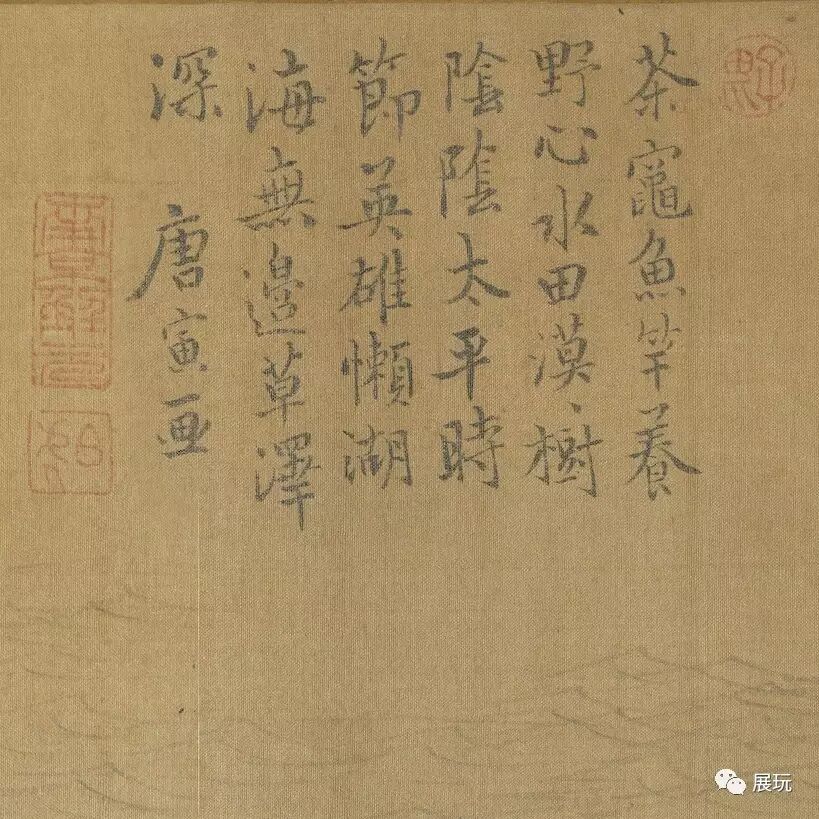 茶竈魚竿養
野心水田漠、樹
陰陰太平時
節英雄懶湖
海無邊草澤
深 唐寅画
展玩